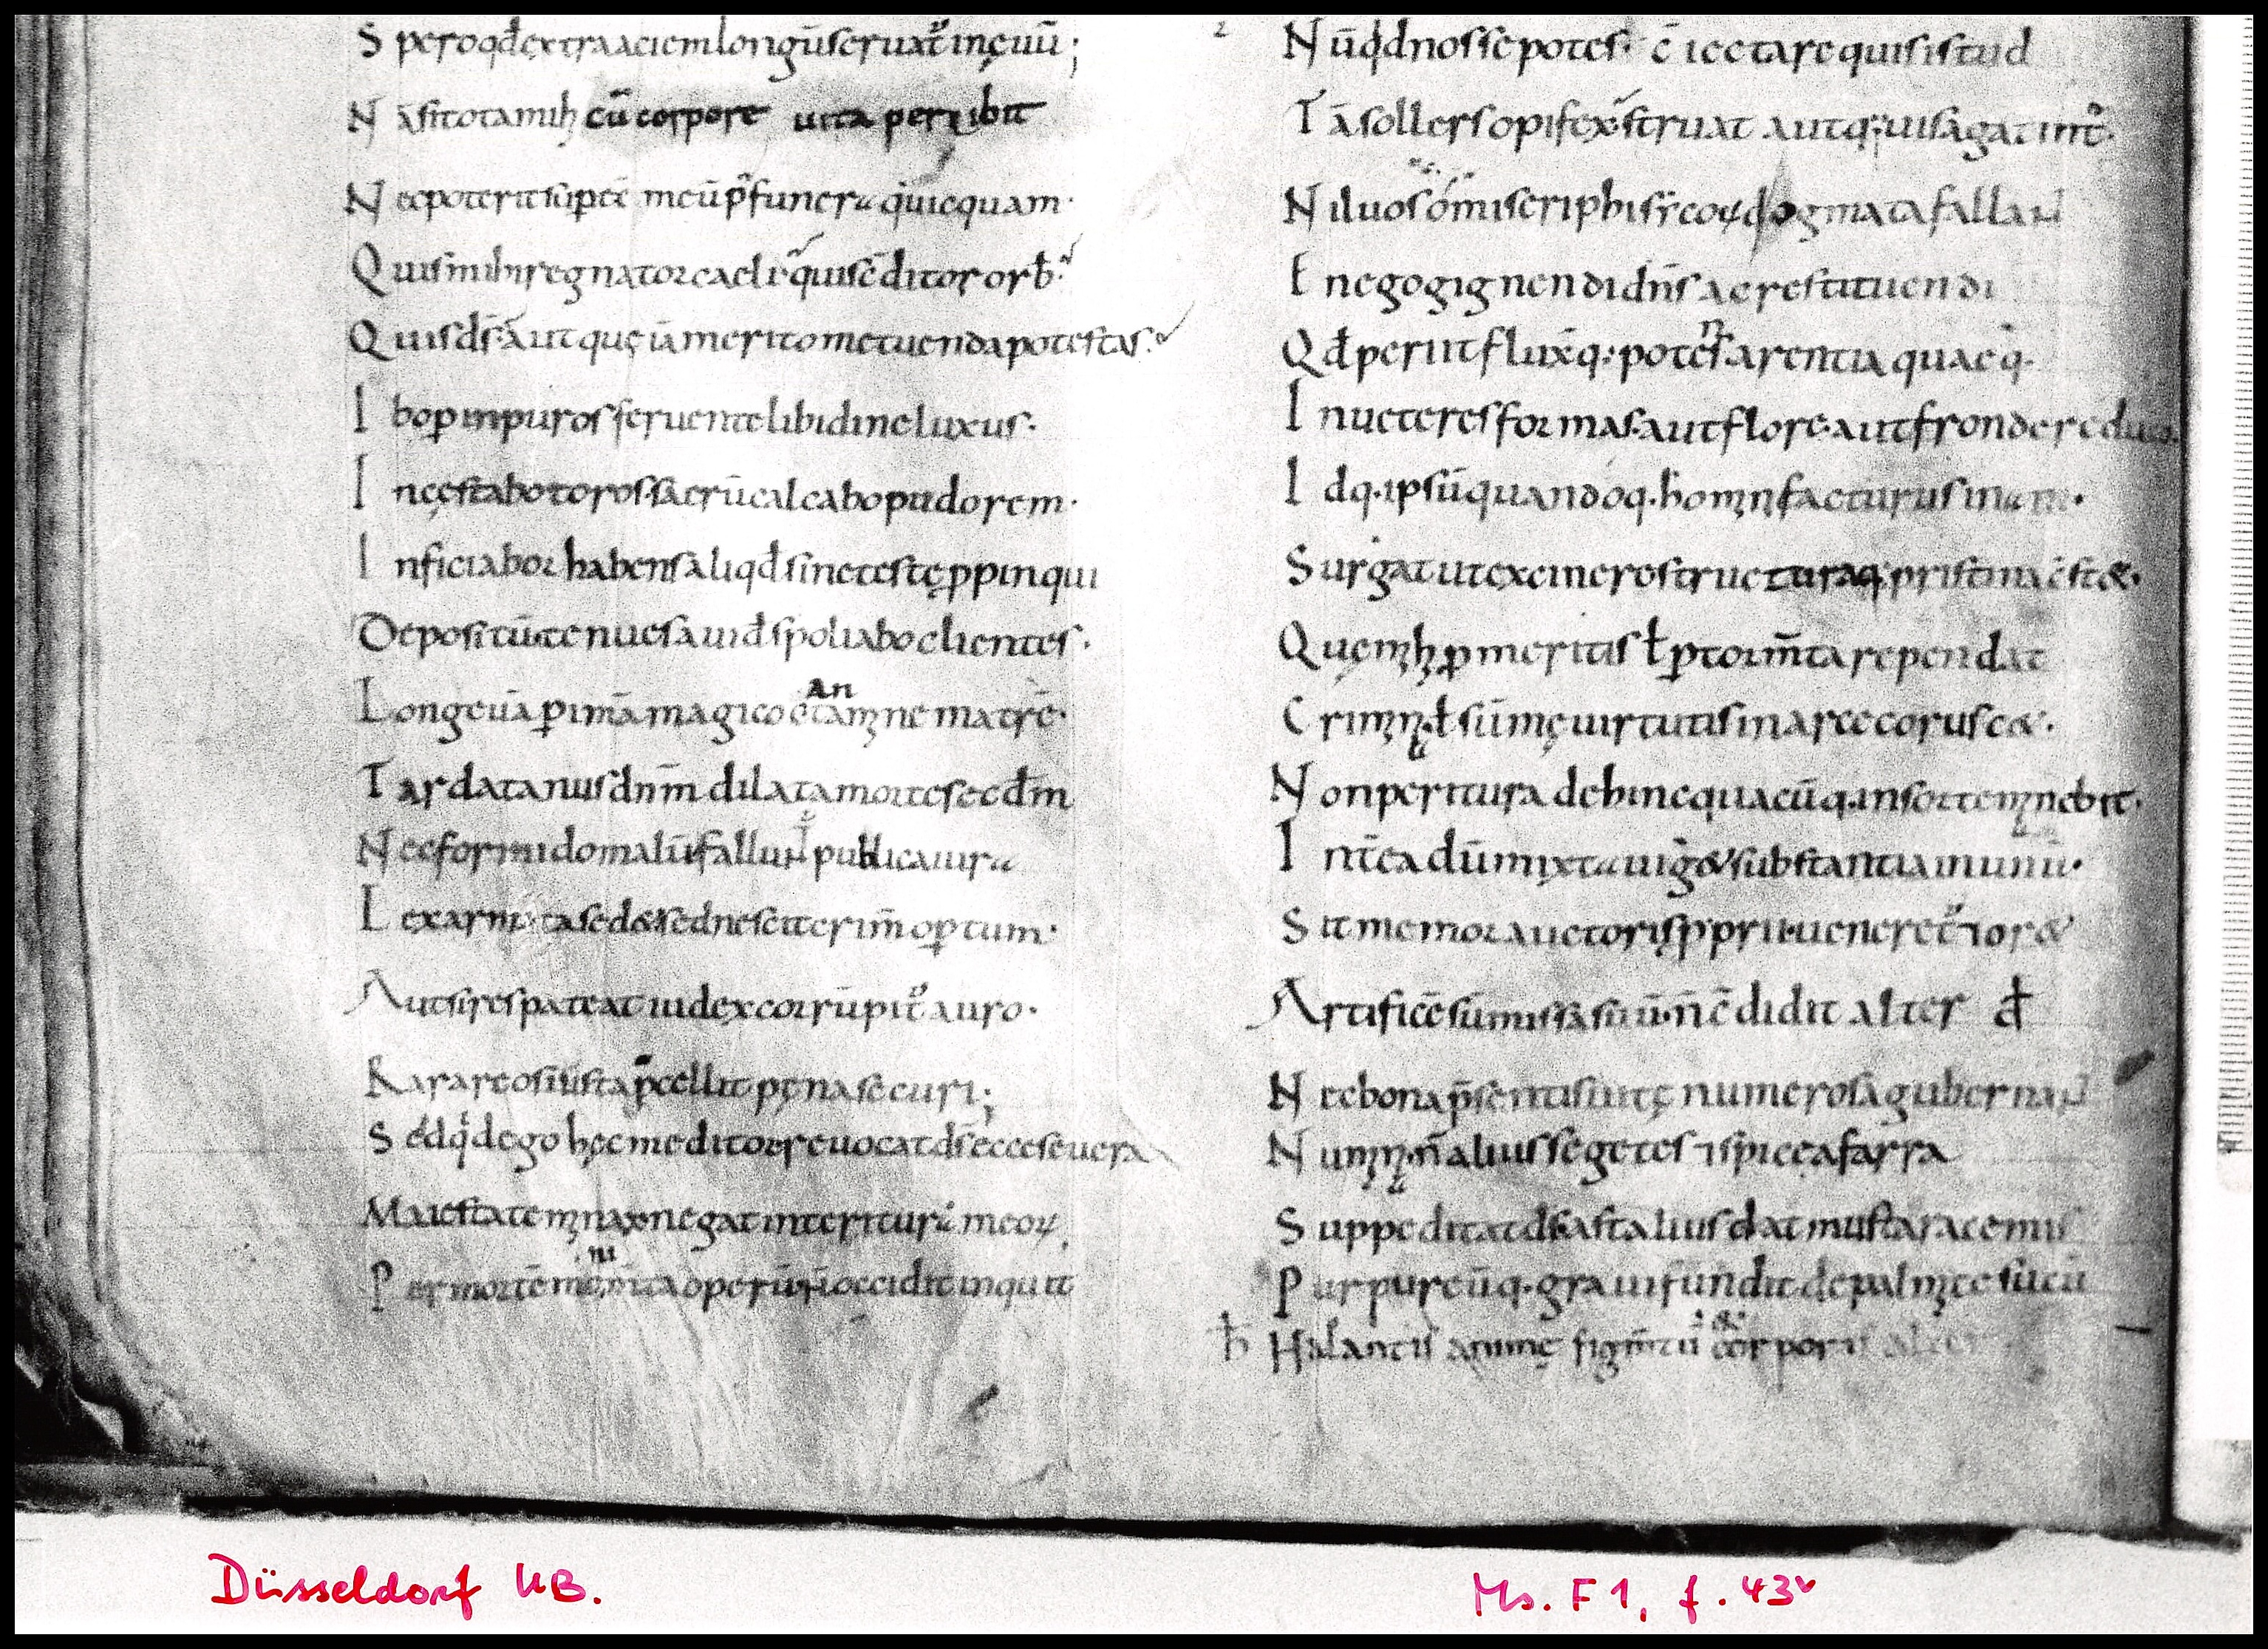 Speroqđ extra aciem longū seruat᷑ in ęuū;
Nā si tota mihi cū corpore uita peribit
Nec poterit sup̄eē meū p̊ funera quicquam·
Quis mihi regnator caeli· quis cōditor orb·
Quis ds̄· aut quę iā merito metuenda potestas·
Ibo ꝑ inpuros feruente libidine luxus·
Incęstabo toros· sacrū calcabo pudorem·
Inficiabor habens aliqđ sine teste ꝓpinqui
Depositū· tenues auid᷑ spoliabo clientes·
Longeuā ꝑimā magico cantamine matrē·
Tardat anus dn̄m dilata morte secdm̄
Nec formido malū fallunt᷑ publica iura
Lex armata sed& sed nescit crim̄ opꝑtum·
Aut si res pateat iudex corrūpit᷑ auro·
Rara reos iusta p̄cellit pęna securi;
Sed qd ego hęc meditor reuocat ds̄ ecce seuera
Maiestate minax negat interiturā meoꝝ
Per mortē monim̄ta operū· n̄ occidit inquit
Nūqđ nosse potes· c̄iectare quis istud
Tā sollers opifex struat aut q; uis agat int᷑·
Nil uos ō miseri phisicoꝝ dogmata fallant
En ego gignendi dn̄s ac restituendi
Qđ periit fluxq· potens arentia quaeq·
In ueteres formas· aut flore· aut fronde reduco
Idq· ipsū quandoq· homini facturus in am·
Surgat ut ex cinere structuraq· pristina cst&·
Quę mihi ꝓ meritis ł ꝑ torm̄ta rependat
Crimina ł sūmę uirtutis in arce corusc&·
Non peritura dehinc quacūq· in sorte manebit·
Int̄ea dū mixta uig& substantia in unū·
Sit memor auctoris ꝓprii· ueneret᷑ ⁊ or&
Artificē sūmissa suū· n̄ c̄didit alter
Nec bona p̄sentis uitę numerosa gubernat
Numina· n̄ alius segetes ⁊ spicea farra
Suppeditat ds̄ ast alius dat musta racemis
Purpureūq· grauI fundit de palmite sucū
Halantis animę figm̄tū corporis alter
Düsseldorf UB.
Ms. F 1, f. 43ᵛ